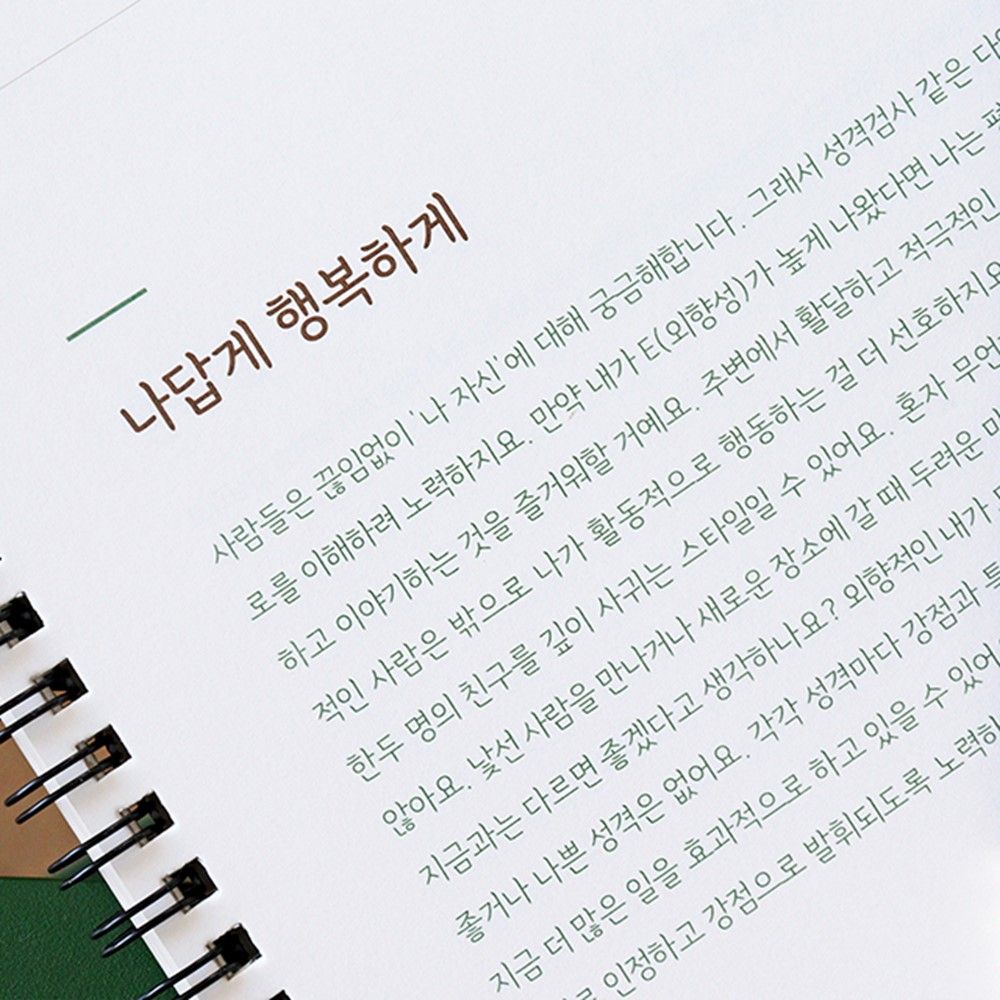 나답게 행복하게
사람들은 끊임없이 '나 자신'에 대해 궁금해합니다. 그래서 성격검사 같은
로를 이해하려 노력하지요. 만약 내가 E(외향성)가 높게 나왔다면 나는
하고 이야기하는 것을 즐거워할 거예요. 주변에서 활달하고 적극적인
적인 사람은 밖으로 나가 활동적으로 행동하는 걸 더 선호하지요
한두 명의 친구를 깊이 사귀는 스타일일 수 있어요. 혼자
않아요. 낯선 사람을 만나거나 새로운 장소에 갈 때 두려운
지금과는 다르면 좋겠다고 생각하나요? 외향적인 내가
좋거나 나쁜 성격은 없어요. 각각 성격마다 강점과
지금 더 많은 일을 효과적으로 하고 있을 수 있어
인정하고 강점으로 발휘되도록